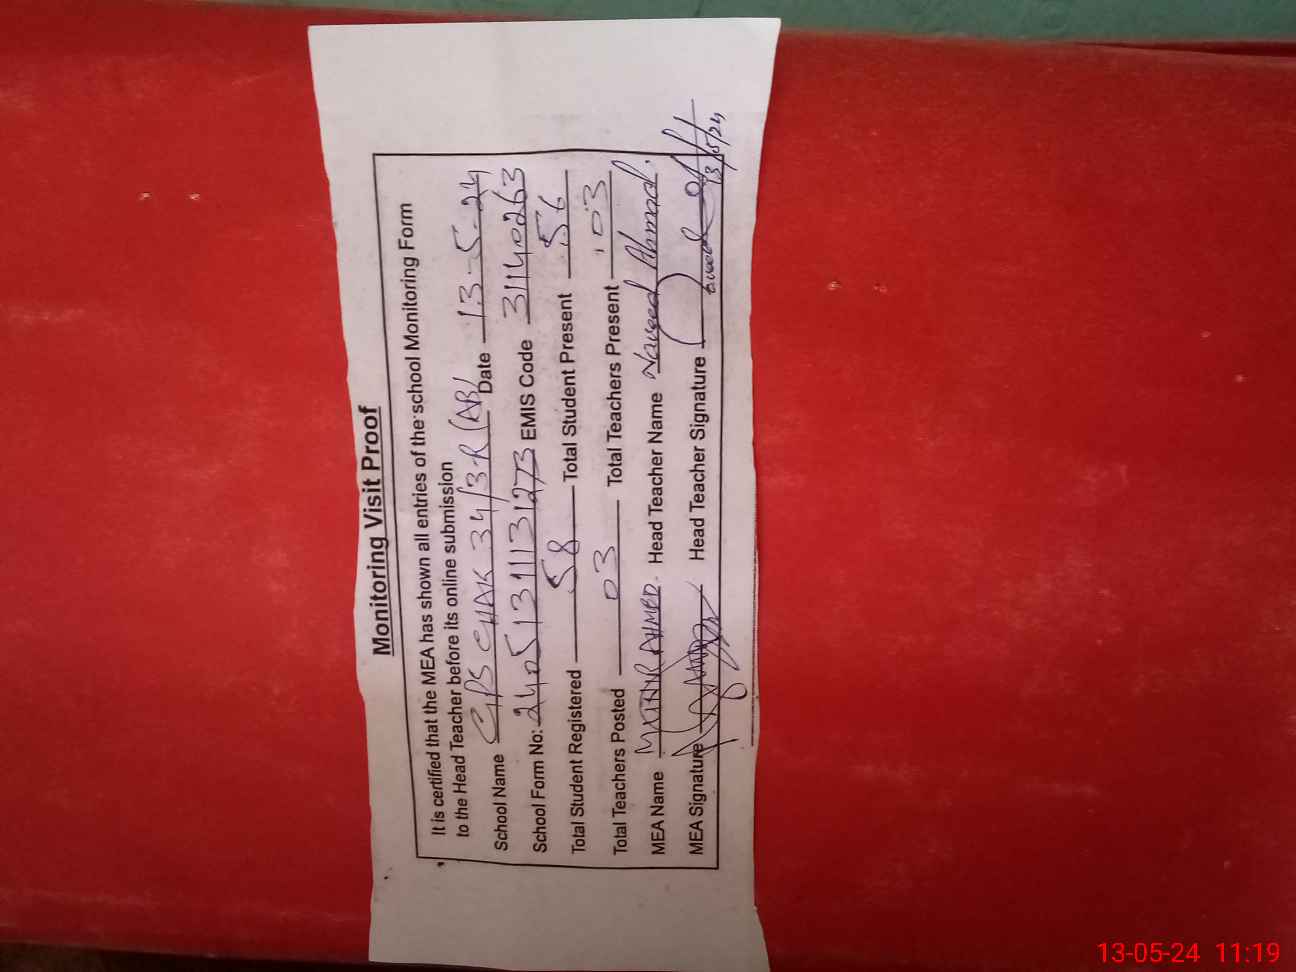 Monitoring Visit Proof
It is certified that the MEA has shown all entries of the school Monitoring Form
to the Head Teacher before its online submission
School Name GPS CHAK 34/3-R (AB) Date 13-5-24
School Form No: 24051311131273 EMIS Code 31140263
Total Student Registered 58 Total Student Present 56
Total Teachers Posted 03 Total Teachers Present 03
MEA Name MUNIR AHMED. Head Teacher Name Naveed Ahmad.
MEA Signature Head Teacher Signature
13/5/24
13-05-24 11:19